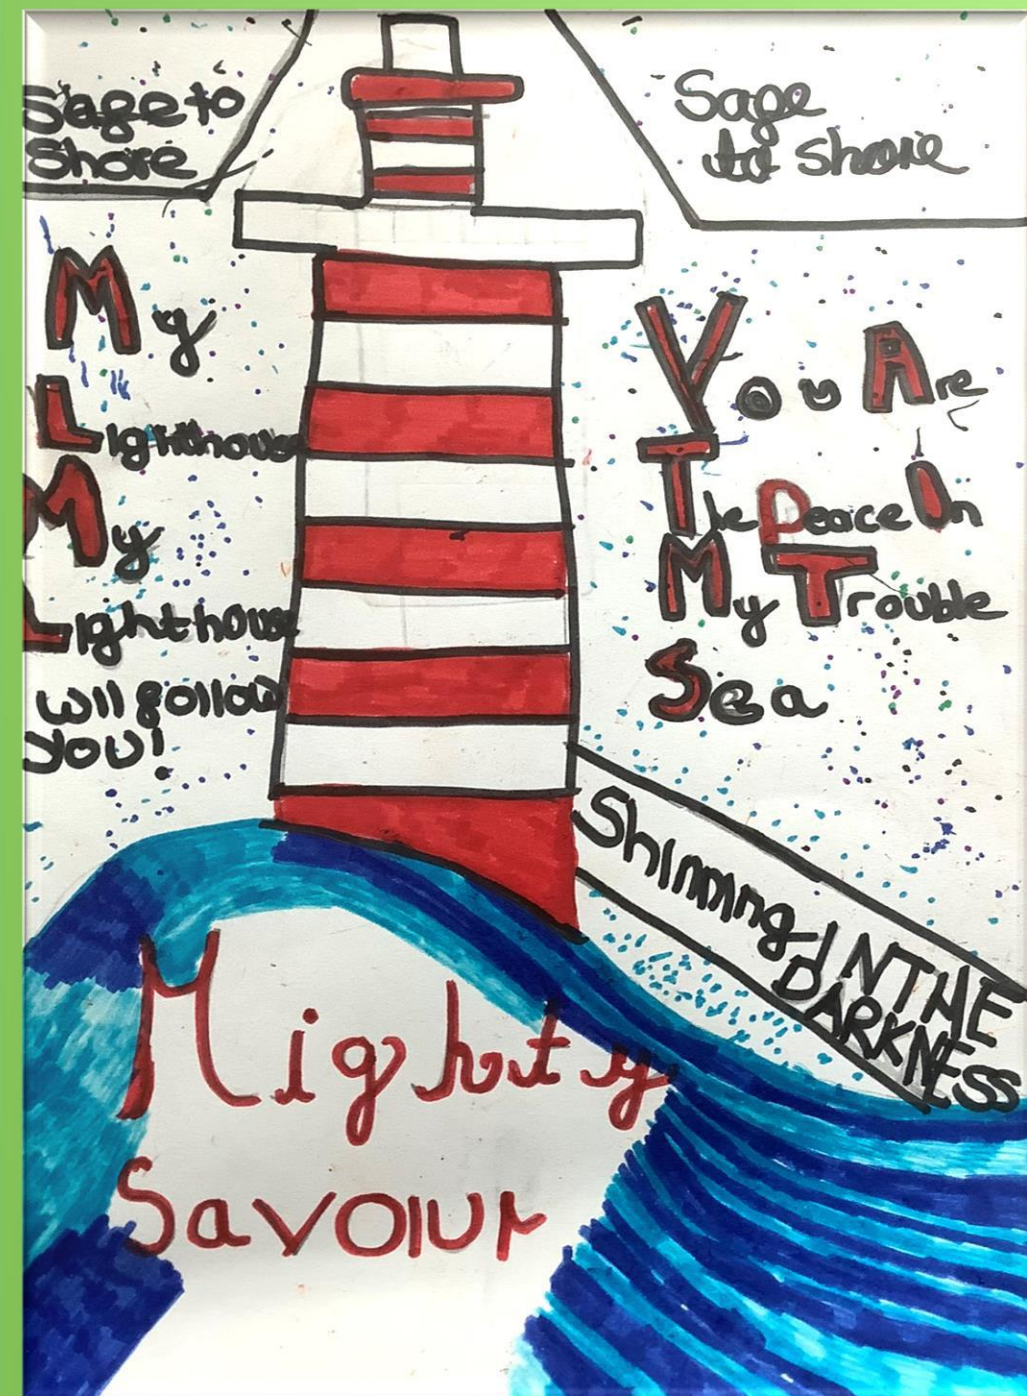 Sage to
Shore
Sage
to shore
My
Lighthouse
My
Lighthouse
will follow
you!
You Are
The Peace In
My Trouble
Sea
Shinning IN THE
DARKNESS
Mighty
Saviour